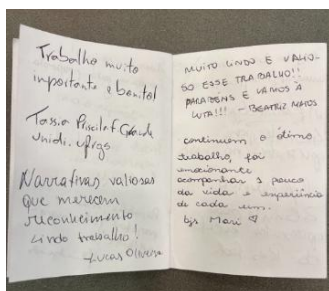 Trabalho muito
importante e bonito!
Tassia Priscila
Narrativas valiosas
que merecem
reconhecimento
Lindo trabalho!
-Lucas Oliveira
MUITO LINDO E VALIO-
SO ESSE TRABALHO!!
PARABÉNS E VAMOS À
LUTA!!! - BEATRIZ MATOS
continuem o ótimo
trabalho, foi
emocionante
acompanhar 1 pouco
da vida e experiência
de cada um.
bjs Mari